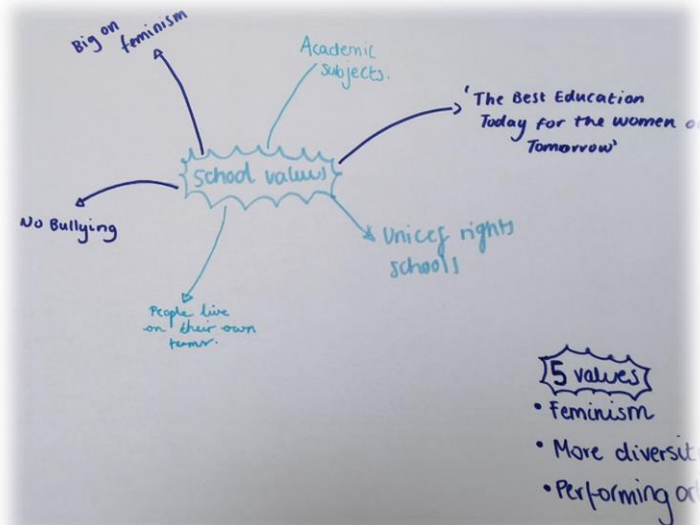 Big on
feminism
Academic
subjects.
'The Best Education
Today for the women o
Tomorrow'
School values
No Bullying
Unicef rights
schools
People live
on their own
terms.
5 values
• Feminism
• More diversit
• Performing ar